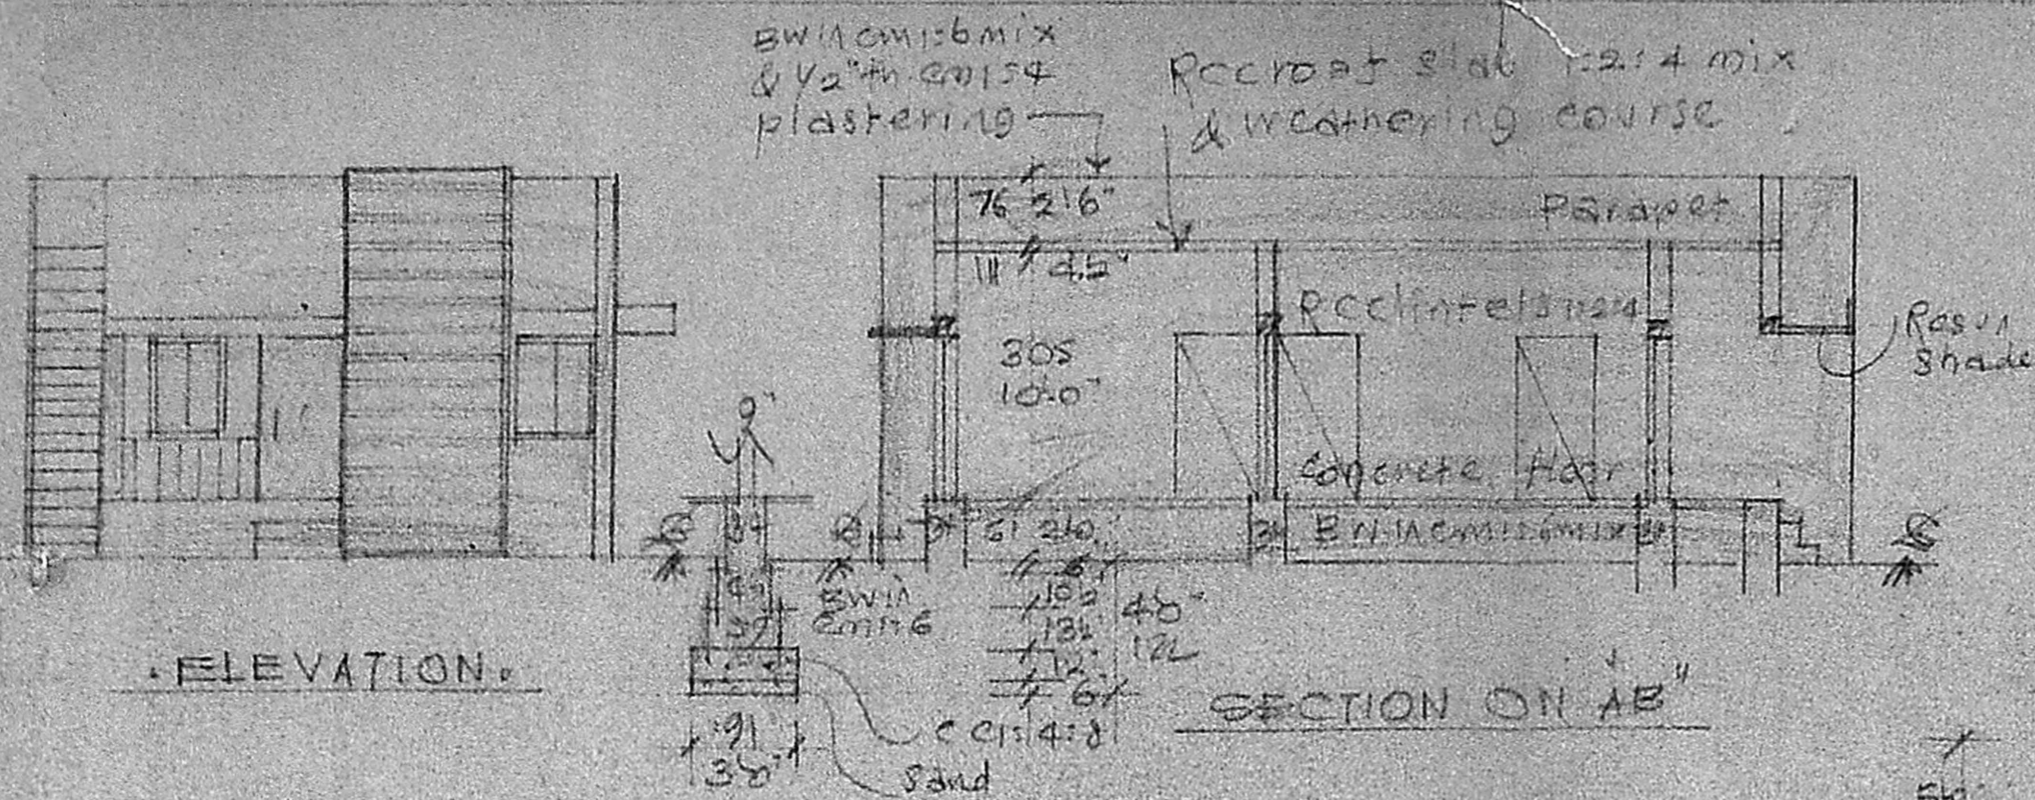 BW in cm 1:6 mix
& 1/2" th cm 1:4
plastering
Rcc roof slab 1:2:4 mix
& weathering course
76 2'6"
Parapet
111 4.5"
Rcc lintels 1:2:4
305
10'-0"
Rcsun
shade
9"
Concrete floor
61 2'0"
BW in cm 1:6 mix
BW in
cm 1:6
4'0"
122
12"
6"
.ELEVATION.
SECTION ON 'AB"
.91
3'0"
cc 1:4:8
sand